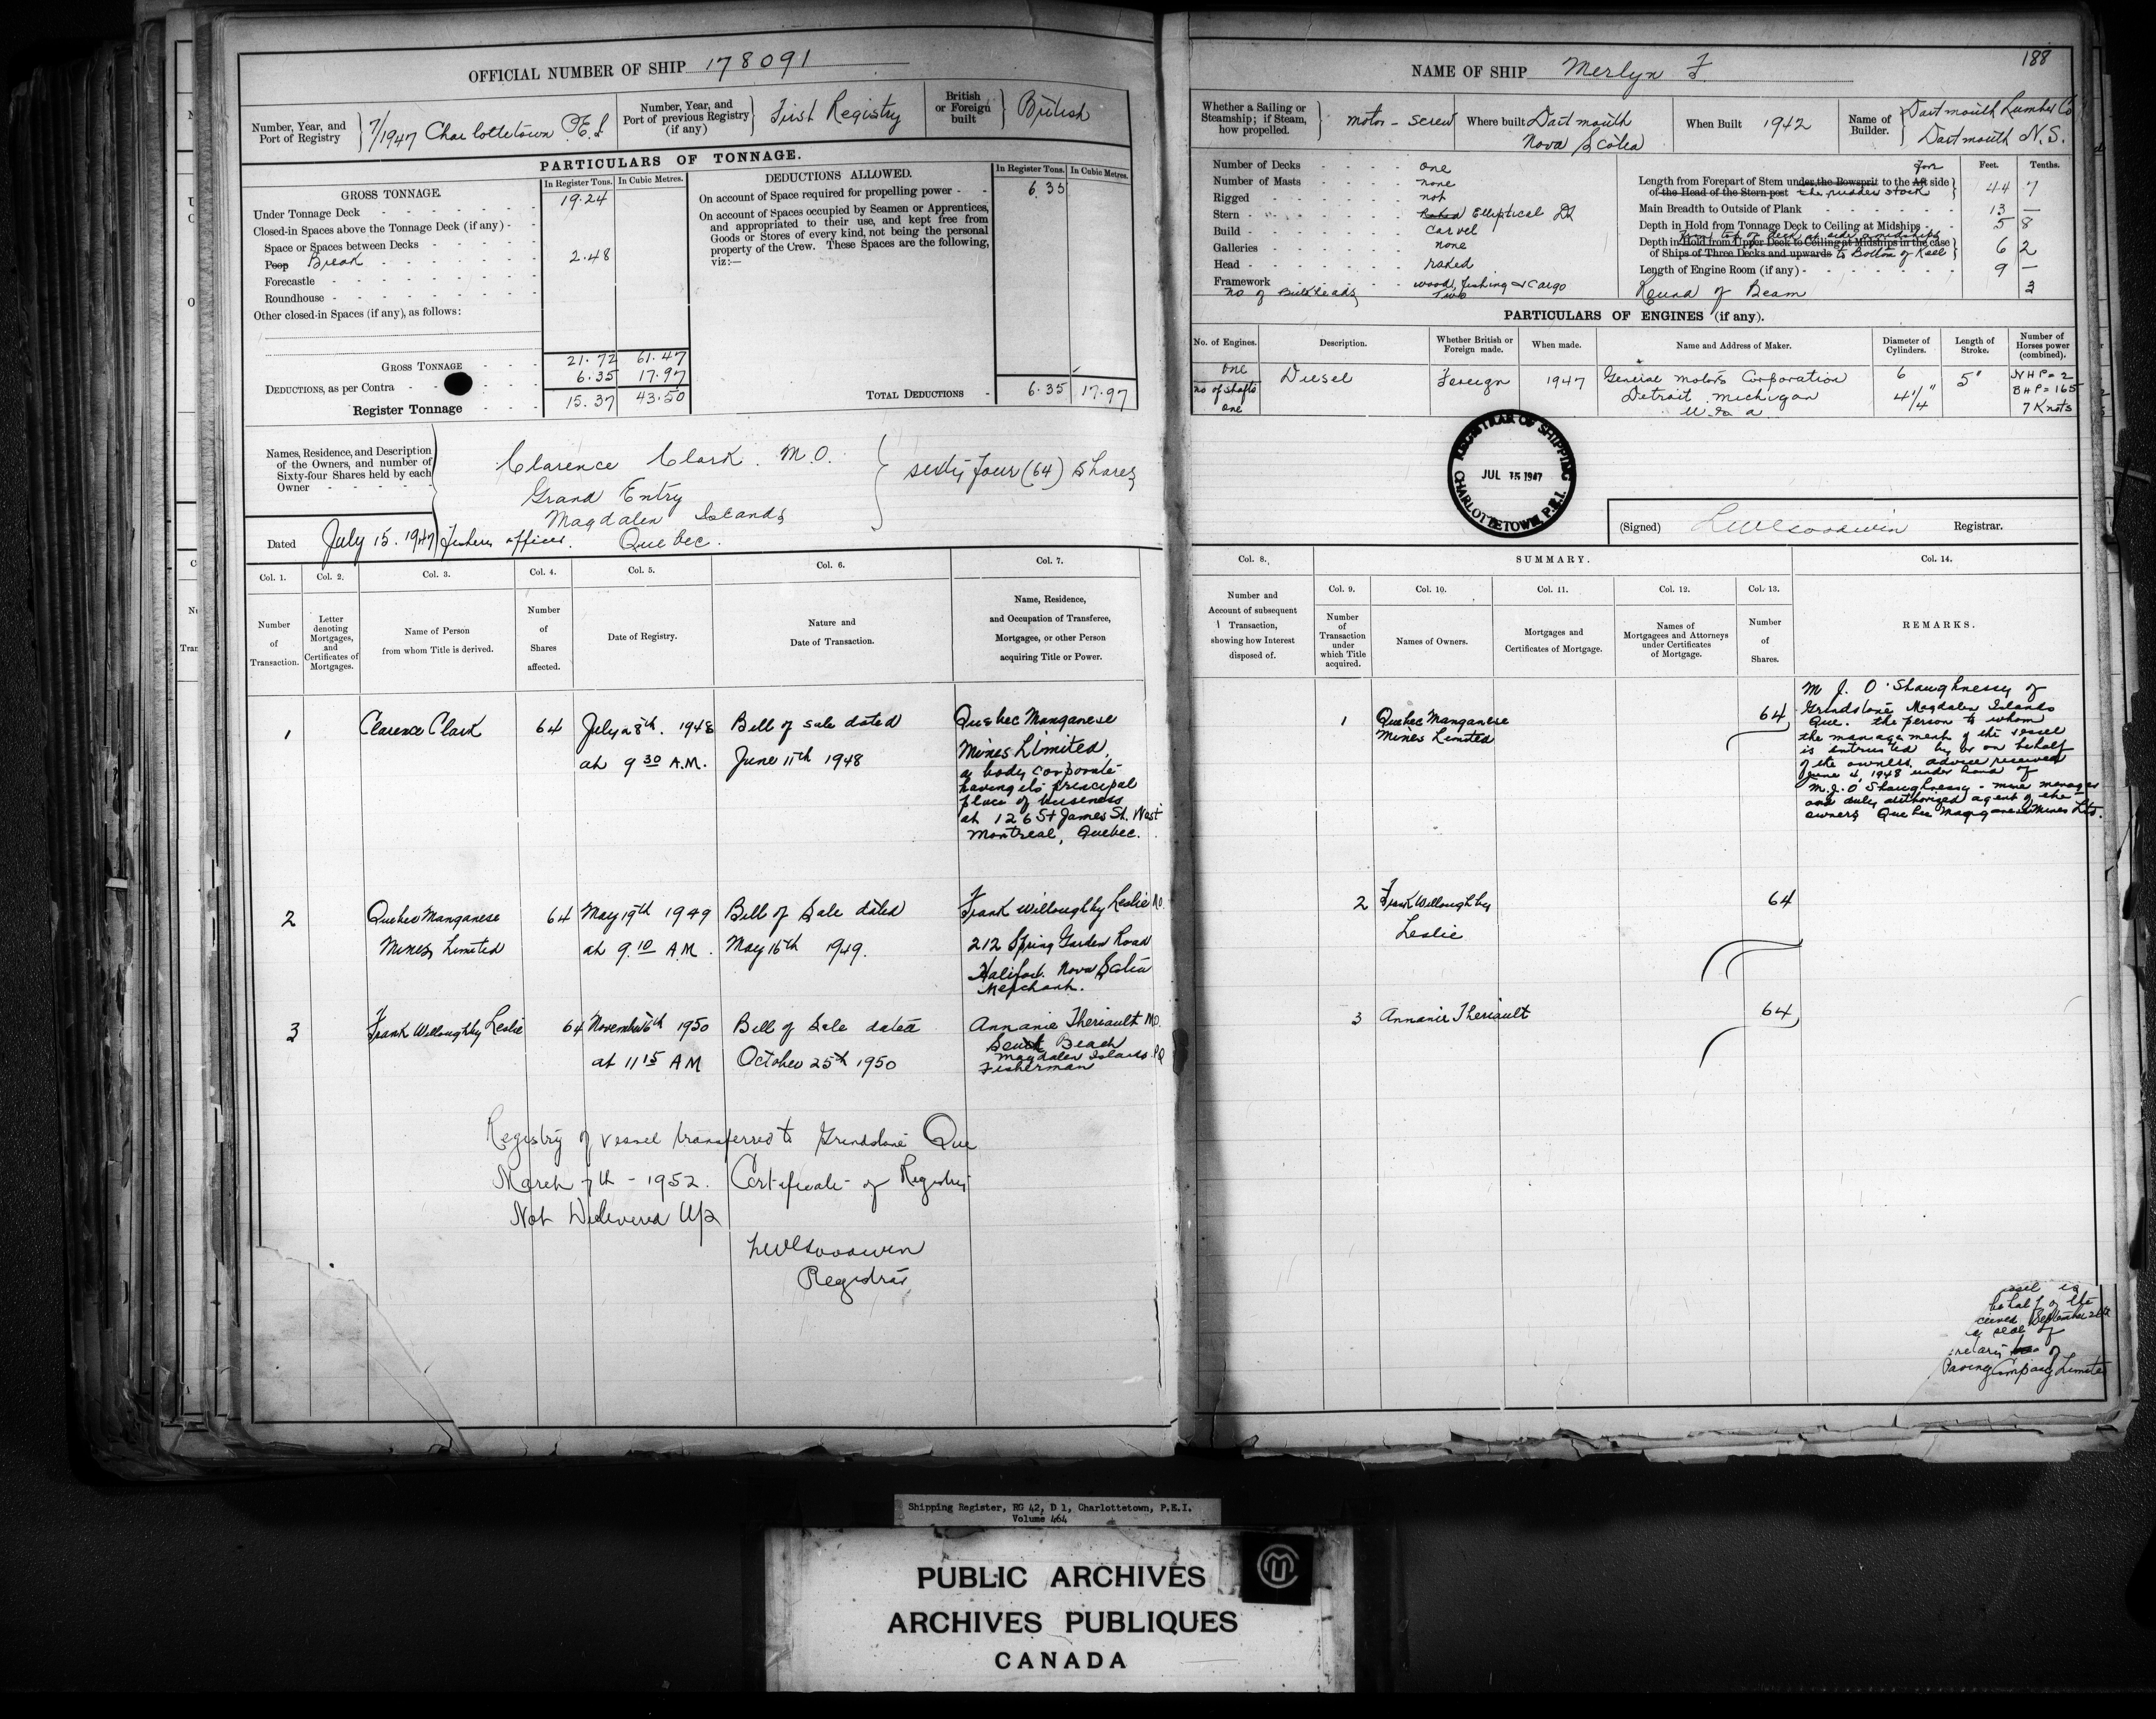 OFFICIAL NUMBER OF SHIP 178091
Number, Year, and Port of Registry } 7/1947 Charlottetown P.E.I.
Number, Year, and Port of previous Registry (if any) } First Registry
British or Foreign built } British
PARTICULARS OF TONNAGE.
GROSS TONNAGE.
In Register Tons. In Cubic Metres.
Under Tonnage Deck - 19.24
Closed-in Spaces above the Tonnage Deck (if any) -
Space or Spaces between Decks -
Poop Break - 2.48
Forecastle -
Roundhouse -
Other closed-in Spaces (if any), as follows:
GROSS TONNAGE - 21.72 61.47
DEDUCTIONS, as per Contra - 6.35 17.97
Register Tonnage - 15.37 43.50
DEDUCTIONS ALLOWED.
In Register Tons. In Cubic Metres.
On account of Space required for propelling power - 6.35
On account of Spaces occupied by Seamen or Apprentices,
and appropriated to their use, and kept free from
Goods or Stores of every kind, not being the personal
property of the Crew. These Spaces are the following,
viz:—
TOTAL DEDUCTIONS - 6.35 17.97
Names, Residence, and Description
of the Owners, and number of
Sixty-four Shares held by each
Owner
Clarence Clark. M.O. } sixty four (64) Shares
Grand Entry
Magdalen Islands
Quebec.
Dated July 15. 1947
Col. 1. Col. 2. Col. 3. Col. 4. Col. 5. Col. 6. Col. 7.
Number of Transaction.
Letter denoting Mortgages, and Certificates of Mortgages.
Name of Person from whom Title is derived.
Number of Shares affected.
Date of Registry.
Nature and Date of Transaction.
Name, Residence, and Occupation of Transferee, Mortgagee, or other Person acquiring Title or Power.
1 Clarence Clark 64 July 28th. 1948 Bill of sale dated Quebec Manganese
at 9 30 A.M. June 11th 1948 Mines Limited,
a body corporate
having its principal
place of business
at 126 St James St. West
Montreal, Quebec.
2 Quebec Manganese 64 May 19th 1949 Bill of Sale dated Frank Willoughby Leslie M.O.
Mines Limited at 9.10 A.M. May 16th 1949. 212 Spring Garden Road
Halifax. Nova Scotia
Merchant.
3 Frank Willoughby Leslie 64 November 6th 1950 Bill of Sale dated Annanie Theriault M.O.
at 11 15 A M October 25th 1950 South Beach
Magdalen Islands. P.Q
Fisherman
Registry of vessel transferred to Grindstone Que
March 7th - 1952. Certificate of Registry
Not Delivered Up
Registrar
188
NAME OF SHIP Merlyn F
Whether a Sailing or Steamship; if Steam, how propelled. } motor - screw
Where built Dartmouth
Nova Scotia
When Built 1942
Name of Builder. } Dartmouth Lumber Co
Dartmouth N.S.
Number of Decks - one
Number of Masts - none
Rigged - not
Stern - Raked Elliptical
Build - Carvel
Galleries - none
Head - raked
Framework - wood, fishing & cargo
No of Bulkheads Two
Feet. Tenths.
Length from Forepart of Stem under the Bowsprit to the Aft Fore side
of the Head of the Stern post the rudder stock } 44 7
Main Breadth to Outside of Plank - 13 —
Depth in Hold from Tonnage Deck to Ceiling at Midships - 5 8
from top of deck at side amidships
Depth in Hold from Upper Deck to Ceiling at Midships in the case
of Ships of Three Decks and upwards to Bottom of Keel } 6 2
Length of Engine Room (if any) - 9 —
Round of Beam 3
PARTICULARS OF ENGINES (if any).
No. of Engines. Description. Whether British or Foreign made. When made. Name and Address of Maker. Diameter of Cylinders. Length of Stroke. Number of Horses power (combined).
one Diesel Foreign 1947 General Motors Corporation 6 5" NHP = 2
no of shafts Detroit Michigan 4 1/4" BHP = 165
one U.S.A. 7 Knots
REGISTRAR OF SHIPPING
JUL 15 1947
CHARLOTTETOWN, P.E.I.
(Signed) Registrar.
Col. 8. SUMMARY. Col. 14.
Col. 9. Col. 10. Col. 11. Col. 12. Col. 13.
Number and Account of subsequent Transaction, showing how Interest disposed of.
Number of Transaction under which Title acquired.
Names of Owners.
Mortgages and Certificates of Mortgage.
Names of Mortgagees and Attorneys under Certificates of Mortgage.
Number of Shares.
REMARKS.
1 Quebec Manganese 64
Mines Limited
M J. O'Shaughnessy of
Grindstone Magdalen Islands
Que. the person to whom
the management of the vessel
is entrusted by or on behalf
of the owners advice received
June 4, 1948 under hand of
M.J. O'Shaughnessy - mine manager
and duly authorized agent of the
owners Quebec Manganese Mines Ltd.
2 Frank Willoughby 64
Leslie
3 Annanie Theriault 64
behalf of the
seal of
Paving Company Limited
Shipping Register, RG 42, D 1, Charlottetown, P.E.I.
Volume 464
PUBLIC ARCHIVES
ARCHIVES PUBLIQUES
CANADA